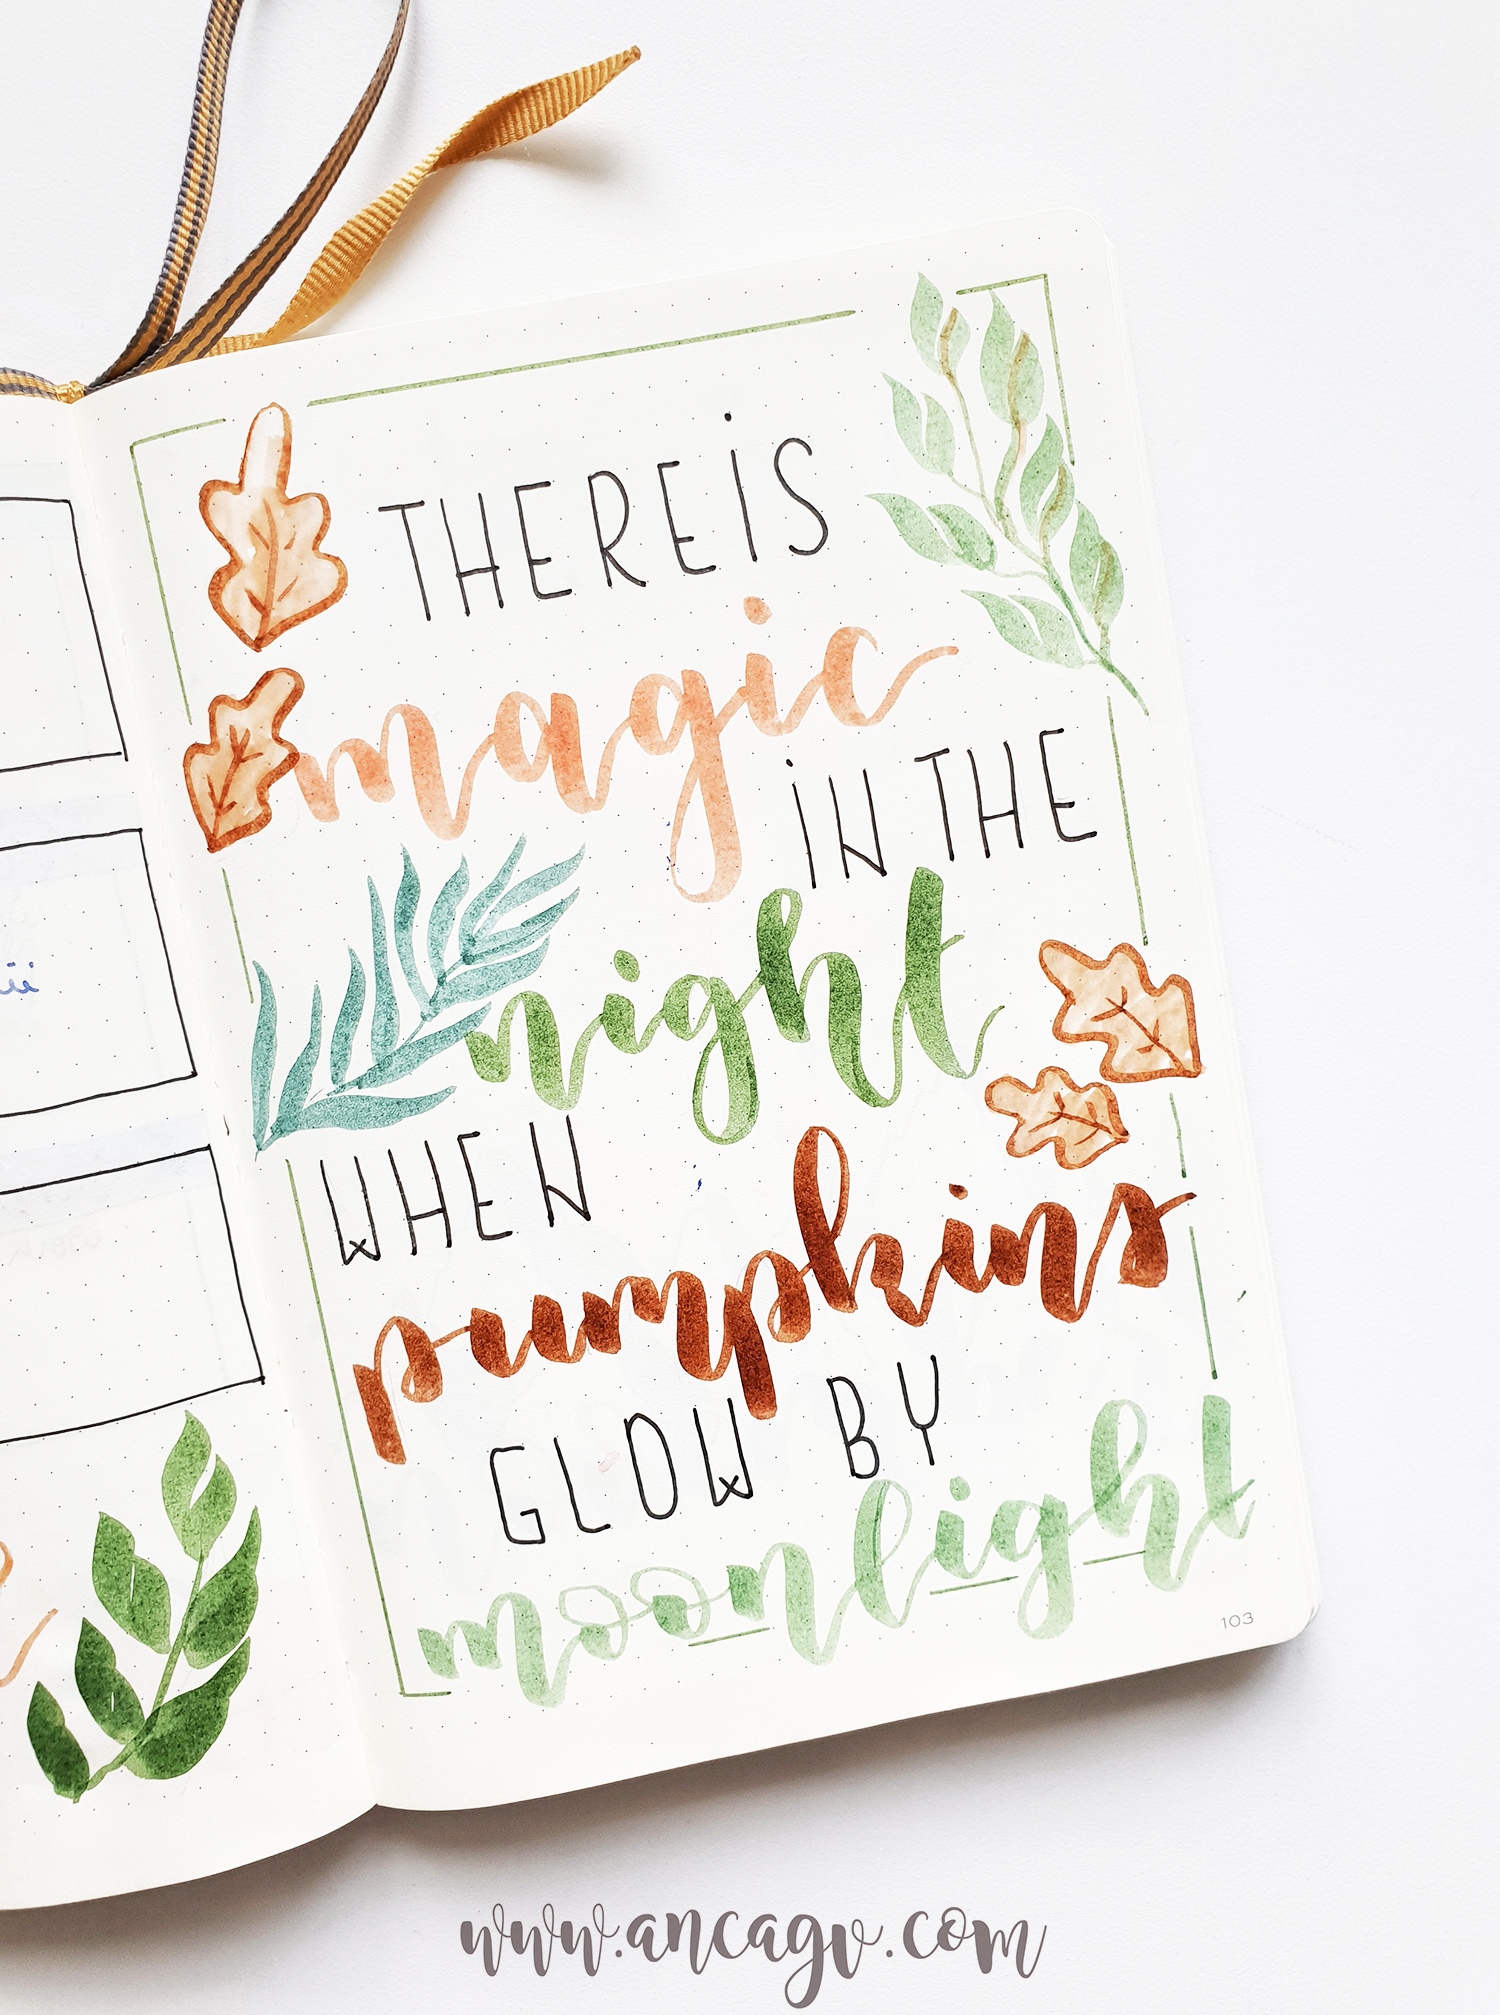 THERE iS
magic
iN THE
night
WHEN
pumpkins
GLOW BY
moonlight
103
www.ancagv.com